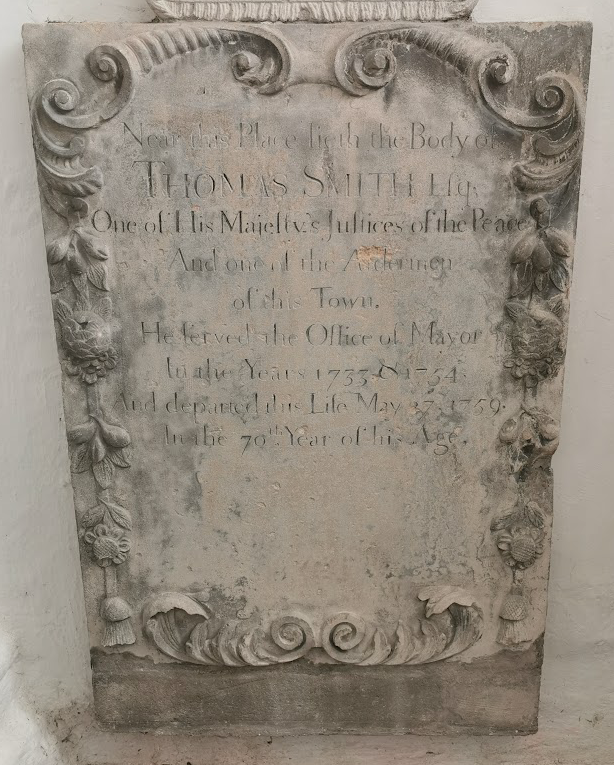 Near this Place lieth the Body of
THOMAS SMITH Eſq.
One of His Majeſty's Juſtices of the Peace
And one of the Aldermen
of this Town.
He ſerved the Office of Mayor
In the Years 1733 & 1754.
And departed this Life May 27. 1759.
In the 70th Year of his Age.